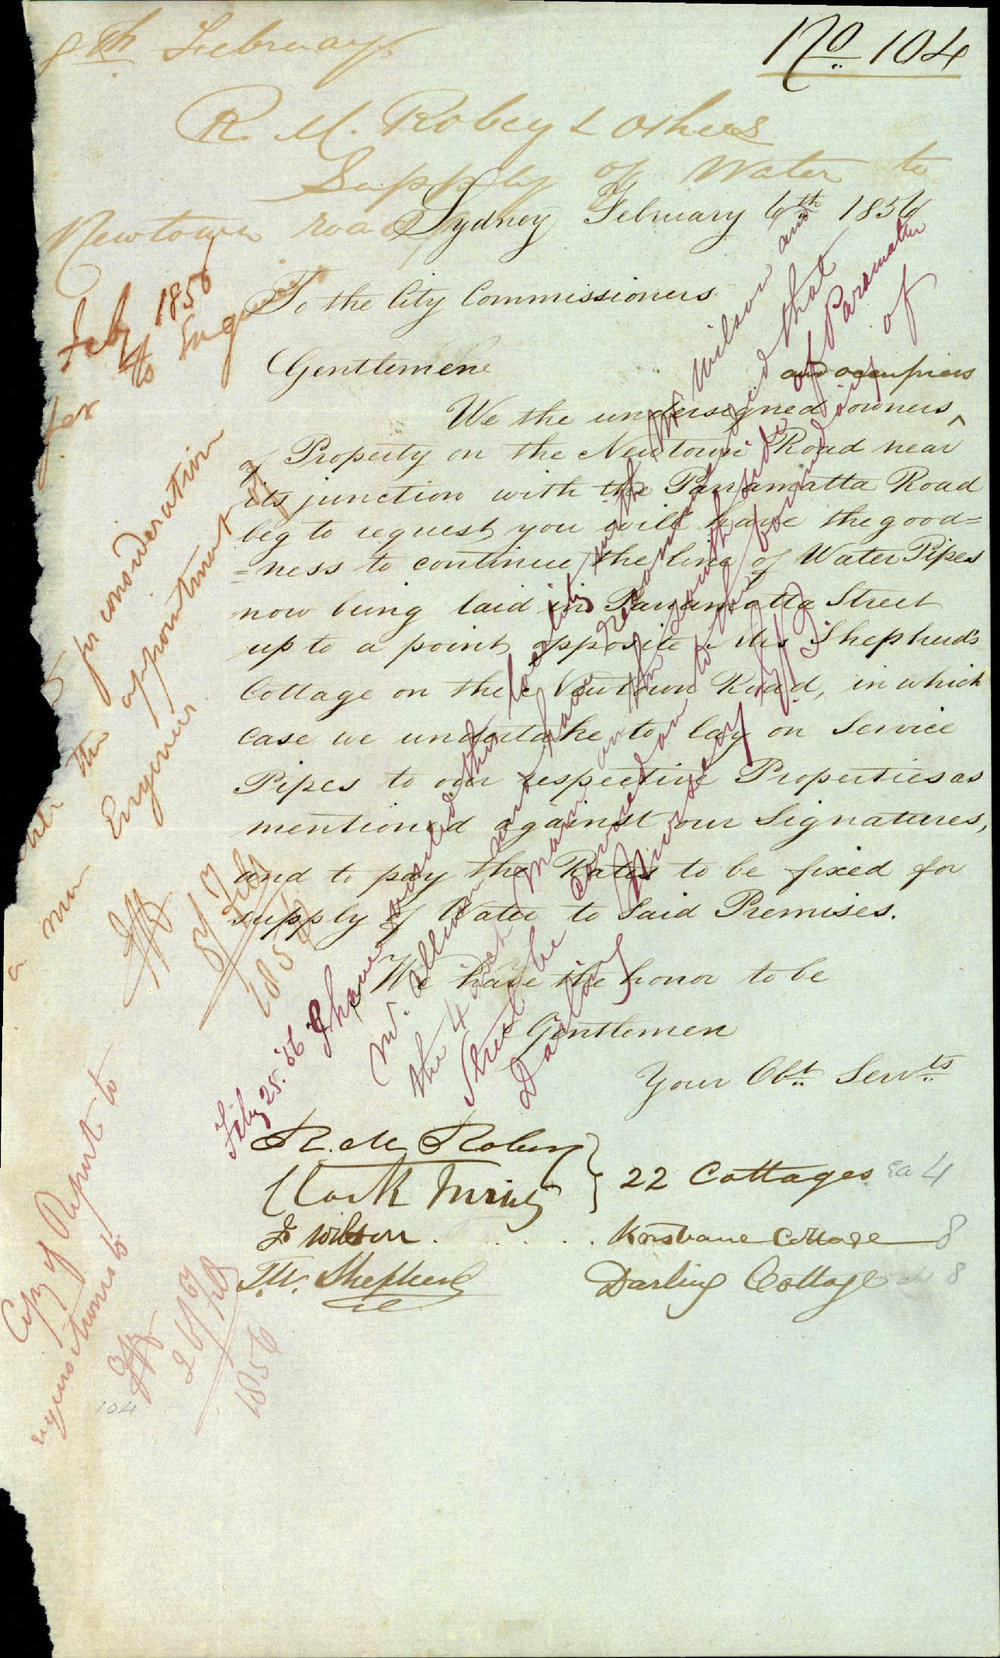 8th February
No 104
R. M. Robey & Others
Supply of Water to
Newtown road
Sydney February 6th 1856
To the City Commissioners
Gentlemen
and occupiers
We the undersigned owners ^
of Property on the Newtown Road near
its junction with the Parramatta Road
beg to request you will have the good=
=ness to continue the line of Water Pipes
now being laid in Parramatta Street
up to a point opposite Mr Shepherd's
Cottage on the Newtown Road, in which
case we undertake to lay on Service
Pipes to our respective Properties as
mentioned against our Signatures,
and to pay the Rates to be fixed for
supply of Water to said Premises.
We have the honor to be
Gentlemen
Your Obt Servts
R. M. Robey
Clark Irving } 22 Cottages ea 4
J Wilson . . . . . Cottage 8
T. W. Shepherd Darling Cottage 8
Feby 25. '56 I have visited this locality with Mr Wilson and
Mr. Allan and have recommended that
the 4 inch Main on the South side of Paramatta
Street be carried on to the boundary of
Darling Nursery
Feby 1856
to
for consideration
the appointment of
Engineer
8/17 Feby
1856
Copy of Report to
26/ Feb
1856
104